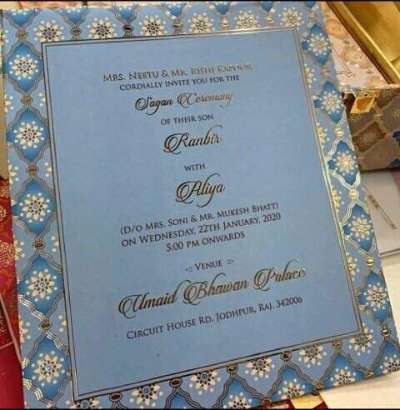 Mrs. Neetu & Mr. Rishi Kapoor
cordially invite you for the
Sagan Ceremony
of their son
Ranbir
with
Aliya
(D/o Mrs. Soni & Mr. Mukesh Bhatt)
on Wednesday, 22th January, 2020
5:00 pm onwards
Venue
Umaid Bhawan Palace
Circuit House Rd, Jodhpur, Raj. 342006